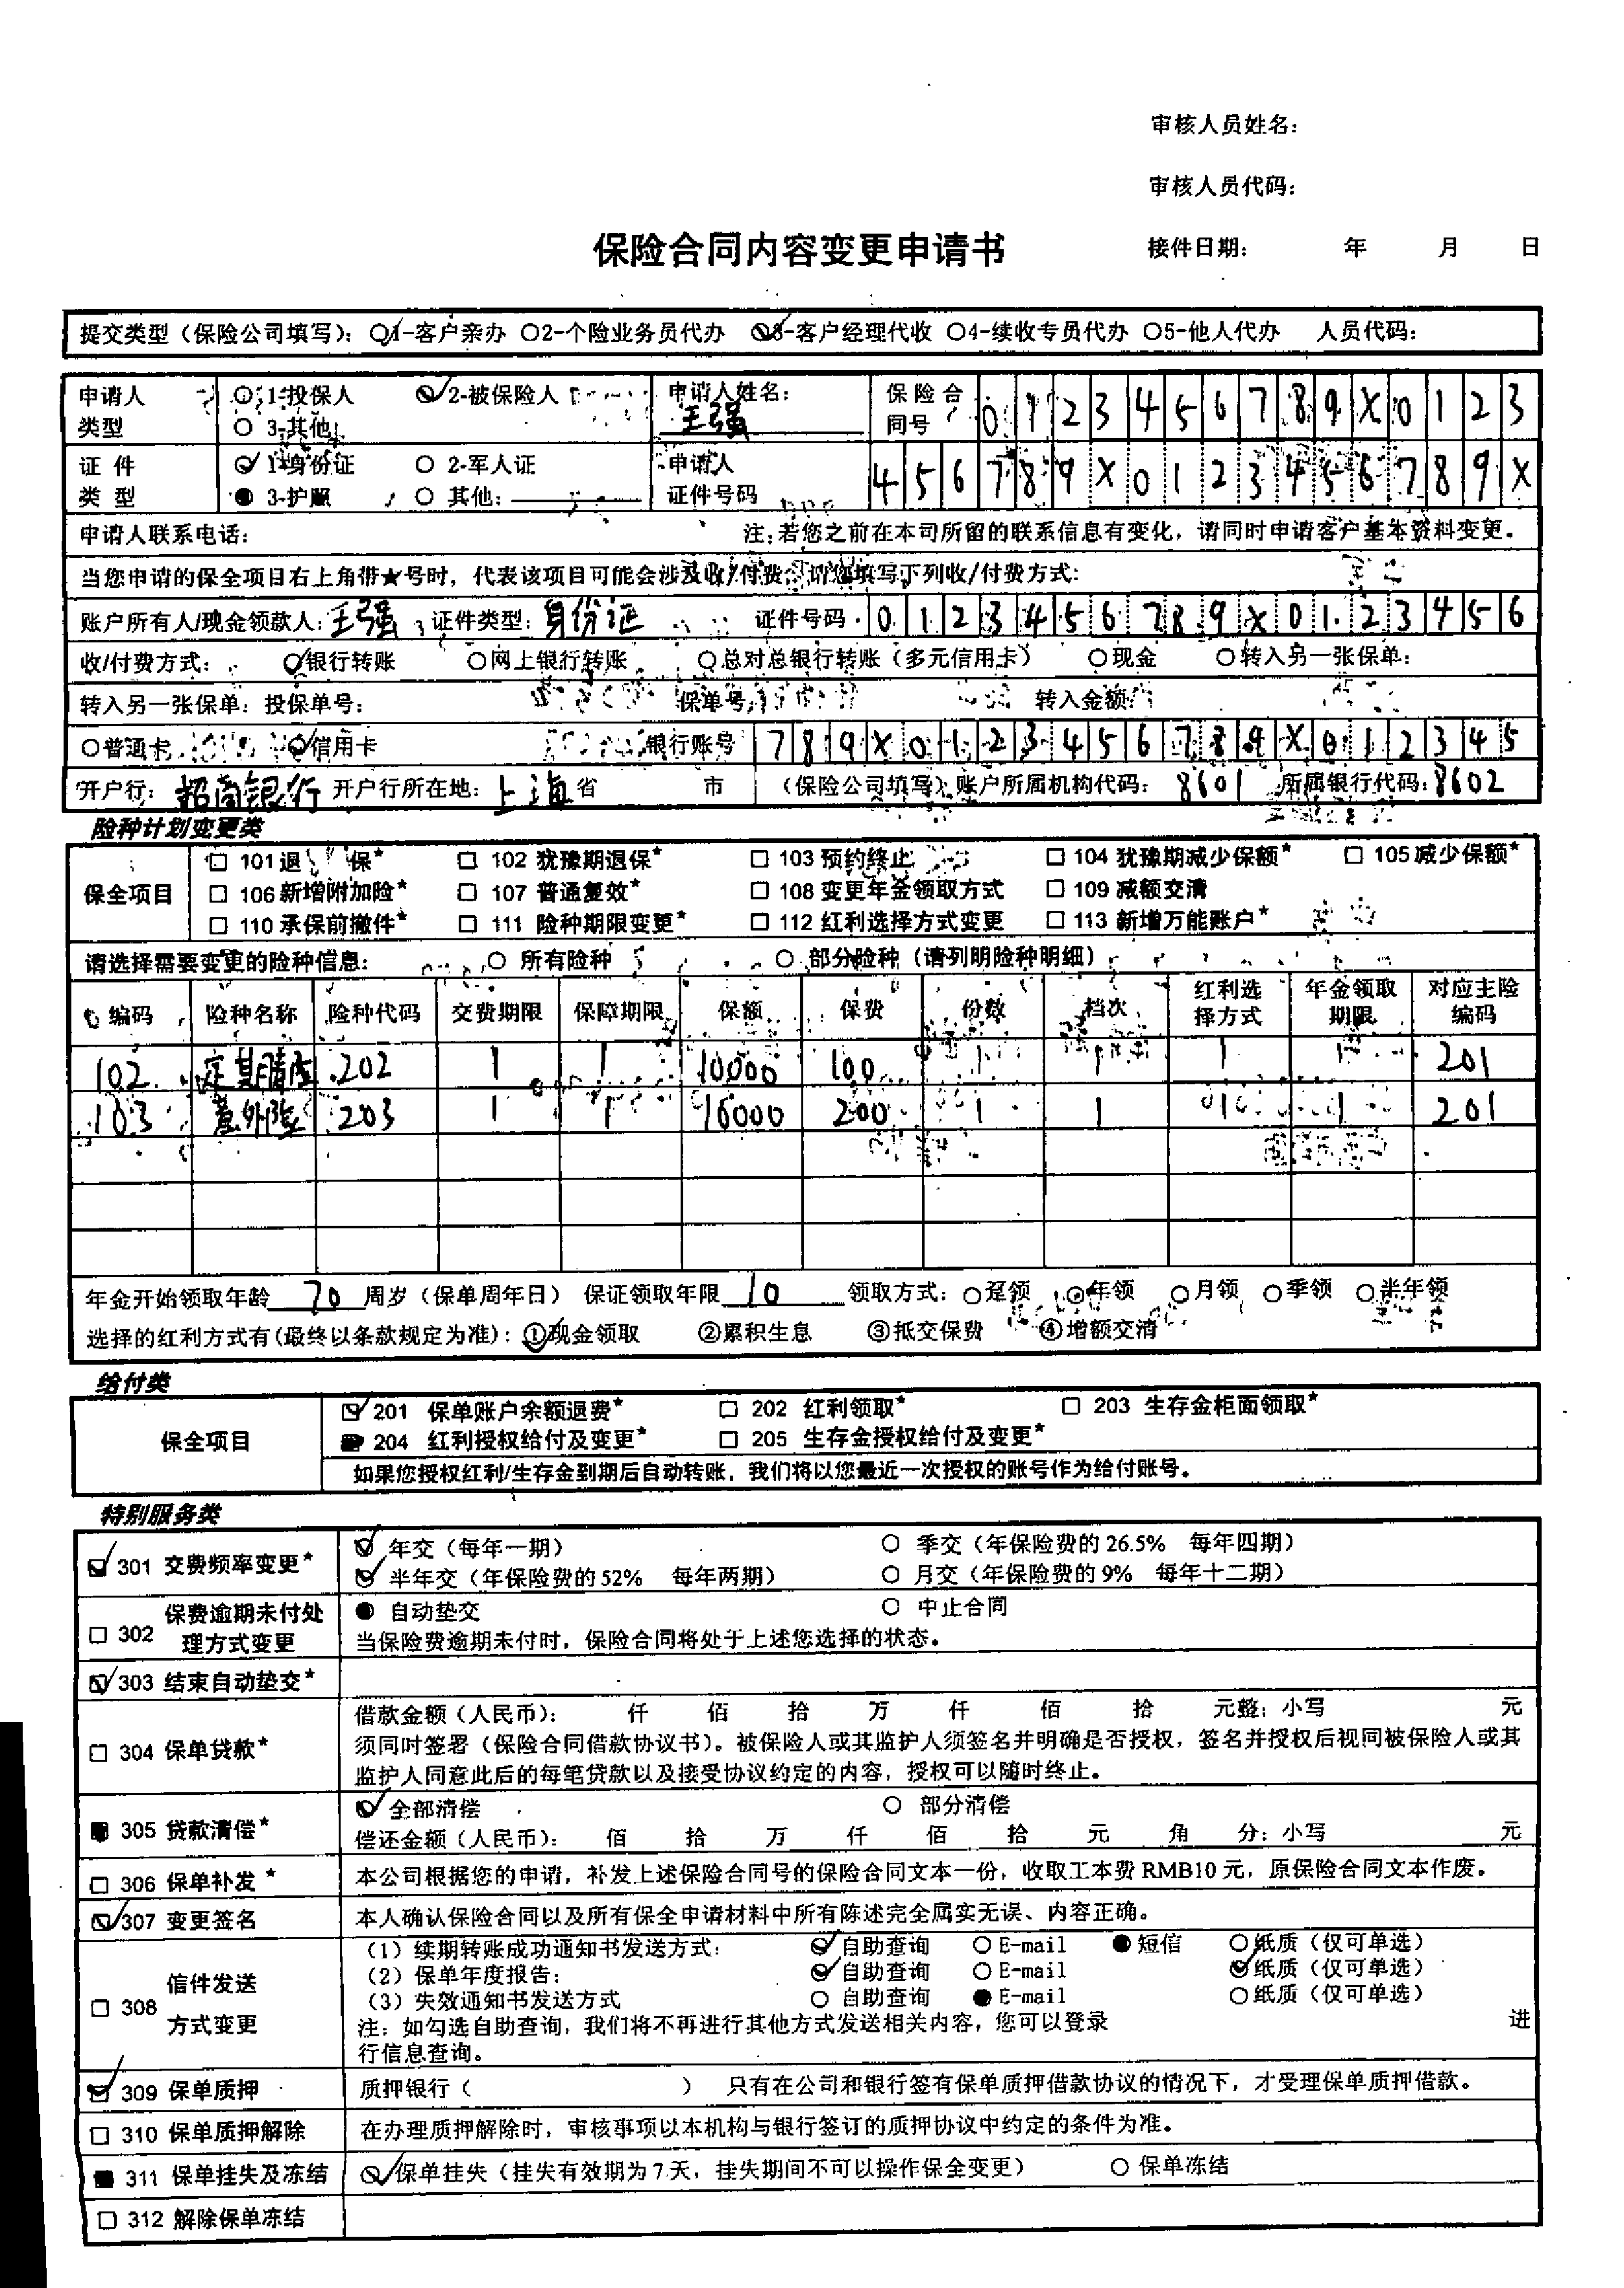 审核人员姓名:
审核人员代码:
保险合同内容变更申请书
接件日期: 年 月 日
提交类型（保险公司填写）: 1-客户亲办 2-个险业务员代办 3-客户经理代收 4-续收专员代办 5-他人代办 人员代码:
申请人类型 1-投保人 2-被保险人 3-其他 申请人姓名: 王强 保险合同号 0123456789X0123
证件类型 1-身份证 2-军人证 3-护照 其他: 申请人证件号码 456789X0123456789X
申请人联系电话: 注:若您之前在本司所留的联系信息有变化，请同时申请客户基本资料变更。
当您申请的保全项目右上角带★号时，代表该项目可能会涉及收/付费，请您填写下列收/付费方式:
账户所有人/现金领款人: 王强 证件类型: 身份证 证件号码 0123456789X0123456
收/付费方式: 银行转账 网上银行转账 总对总银行转账（多元信用卡） 现金 转入另一张保单:
转入另一张保单: 投保单号: 保单号 转入金额
普通卡 信用卡 银行账号 789X0123456789X012345
开户行: 招商银行 开户行所在地: 上海 省 市 （保险公司填写）账户所属机构代码: 8601 所属银行代码: 8602
险种计划变更类
保全项目
□ 101 退 保★ □ 102 犹豫期退保★ □ 103 预约终止 □ 104 犹豫期减少保额★ □ 105 减少保额★
□ 106 新增附加险★ □ 107 普通复效★ □ 108 变更年金领取方式 □ 109 减额交清
□ 110 承保前撤件★ □ 111 险种期限变更★ □ 112 红利选择方式变更 □ 113 新增万能账户★
请选择需要变更的险种信息: ○ 所有险种 ○ 部分险种（请列明险种明细）
编码 险种名称 险种代码 交费期限 保障期限 保额 保费 份数 档次 红利选择方式 年金领取期限 对应主险编码
102 202 1 1 10000 100 1 1 1 1 201
103 意外险 203 1 1 10000 200 1 1 1 1 201
年金开始领取年龄 70 周岁（保单周年日） 保证领取年限 10 领取方式: ○趸领 ○年领 ○月领 ○季领 ○半年领
选择的红利方式有(最终以条款规定为准): ①现金领取 ②累积生息 ③抵交保费 ④增额交清
给付类
保全项目
201 保单账户余额退费★ □ 202 红利领取★ □ 203 生存金柜面领取★
204 红利授权给付及变更★ □ 205 生存金授权给付及变更★
如果您授权红利/生存金到期后自动转账，我们将以您最近一次授权的账号作为给付账号。
特别服务类
301 交费频率变更★ 年交（每年一期） ○ 季交（年保险费的26.5% 每年四期）
半年交（年保险费的52% 每年两期） ○ 月交（年保险费的9% 每年十二期）
□ 302 保费逾期未付处理方式变更 ● 自动垫交 ○ 中止合同
当保险费逾期未付时，保险合同将处于上述您选择的状态。
303 结束自动垫交★
□ 304 保单贷款★ 借款金额（人民币）: 仟 佰 拾 万 仟 佰 拾 元整; 小写 元
须同时签署（保险合同借款协议书）。被保险人或其监护人须签名并明确是否授权，签名并授权后视同被保险人或其
监护人同意此后的每笔贷款以及接受协议约定的内容，授权可以随时终止。
305 贷款清偿★ 全部清偿 ○ 部分清偿
偿还金额（人民币）: 佰 拾 万 仟 佰 拾 元 角 分; 小写 元
□ 306 保单补发★ 本公司根据您的申请，补发上述保险合同号的保险合同文本一份，收取工本费 RMB10 元，原保险合同文本作废。
307 变更签名 本人确认保险合同以及所有保全申请材料中所有陈述完全属实无误、内容正确。
□ 308 信件发送方式变更
（1）续期转账成功通知书发送方式: 自助查询 ○ E-mail ● 短信 ○纸质（仅可单选）
（2）保单年度报告: 自助查询 ○ E-mail 纸质（仅可单选）
（3）失效通知书发送方式 ○ 自助查询 ● E-mail ○纸质（仅可单选）
注: 如勾选自助查询，我们将不再进行其他方式发送相关内容，您可以登录 进
行信息查询。
309 保单质押 质押银行（ ） 只有在公司和银行签有保单质押借款协议的情况下，才受理保单质押借款。
□ 310 保单质押解除 在办理质押解除时，审核事项以本机构与银行签订的质押协议中约定的条件为准。
311 保单挂失及冻结 保单挂失（挂失有效期为7天，挂失期间不可以操作保全变更） ○ 保单冻结
□ 312 解除保单冻结